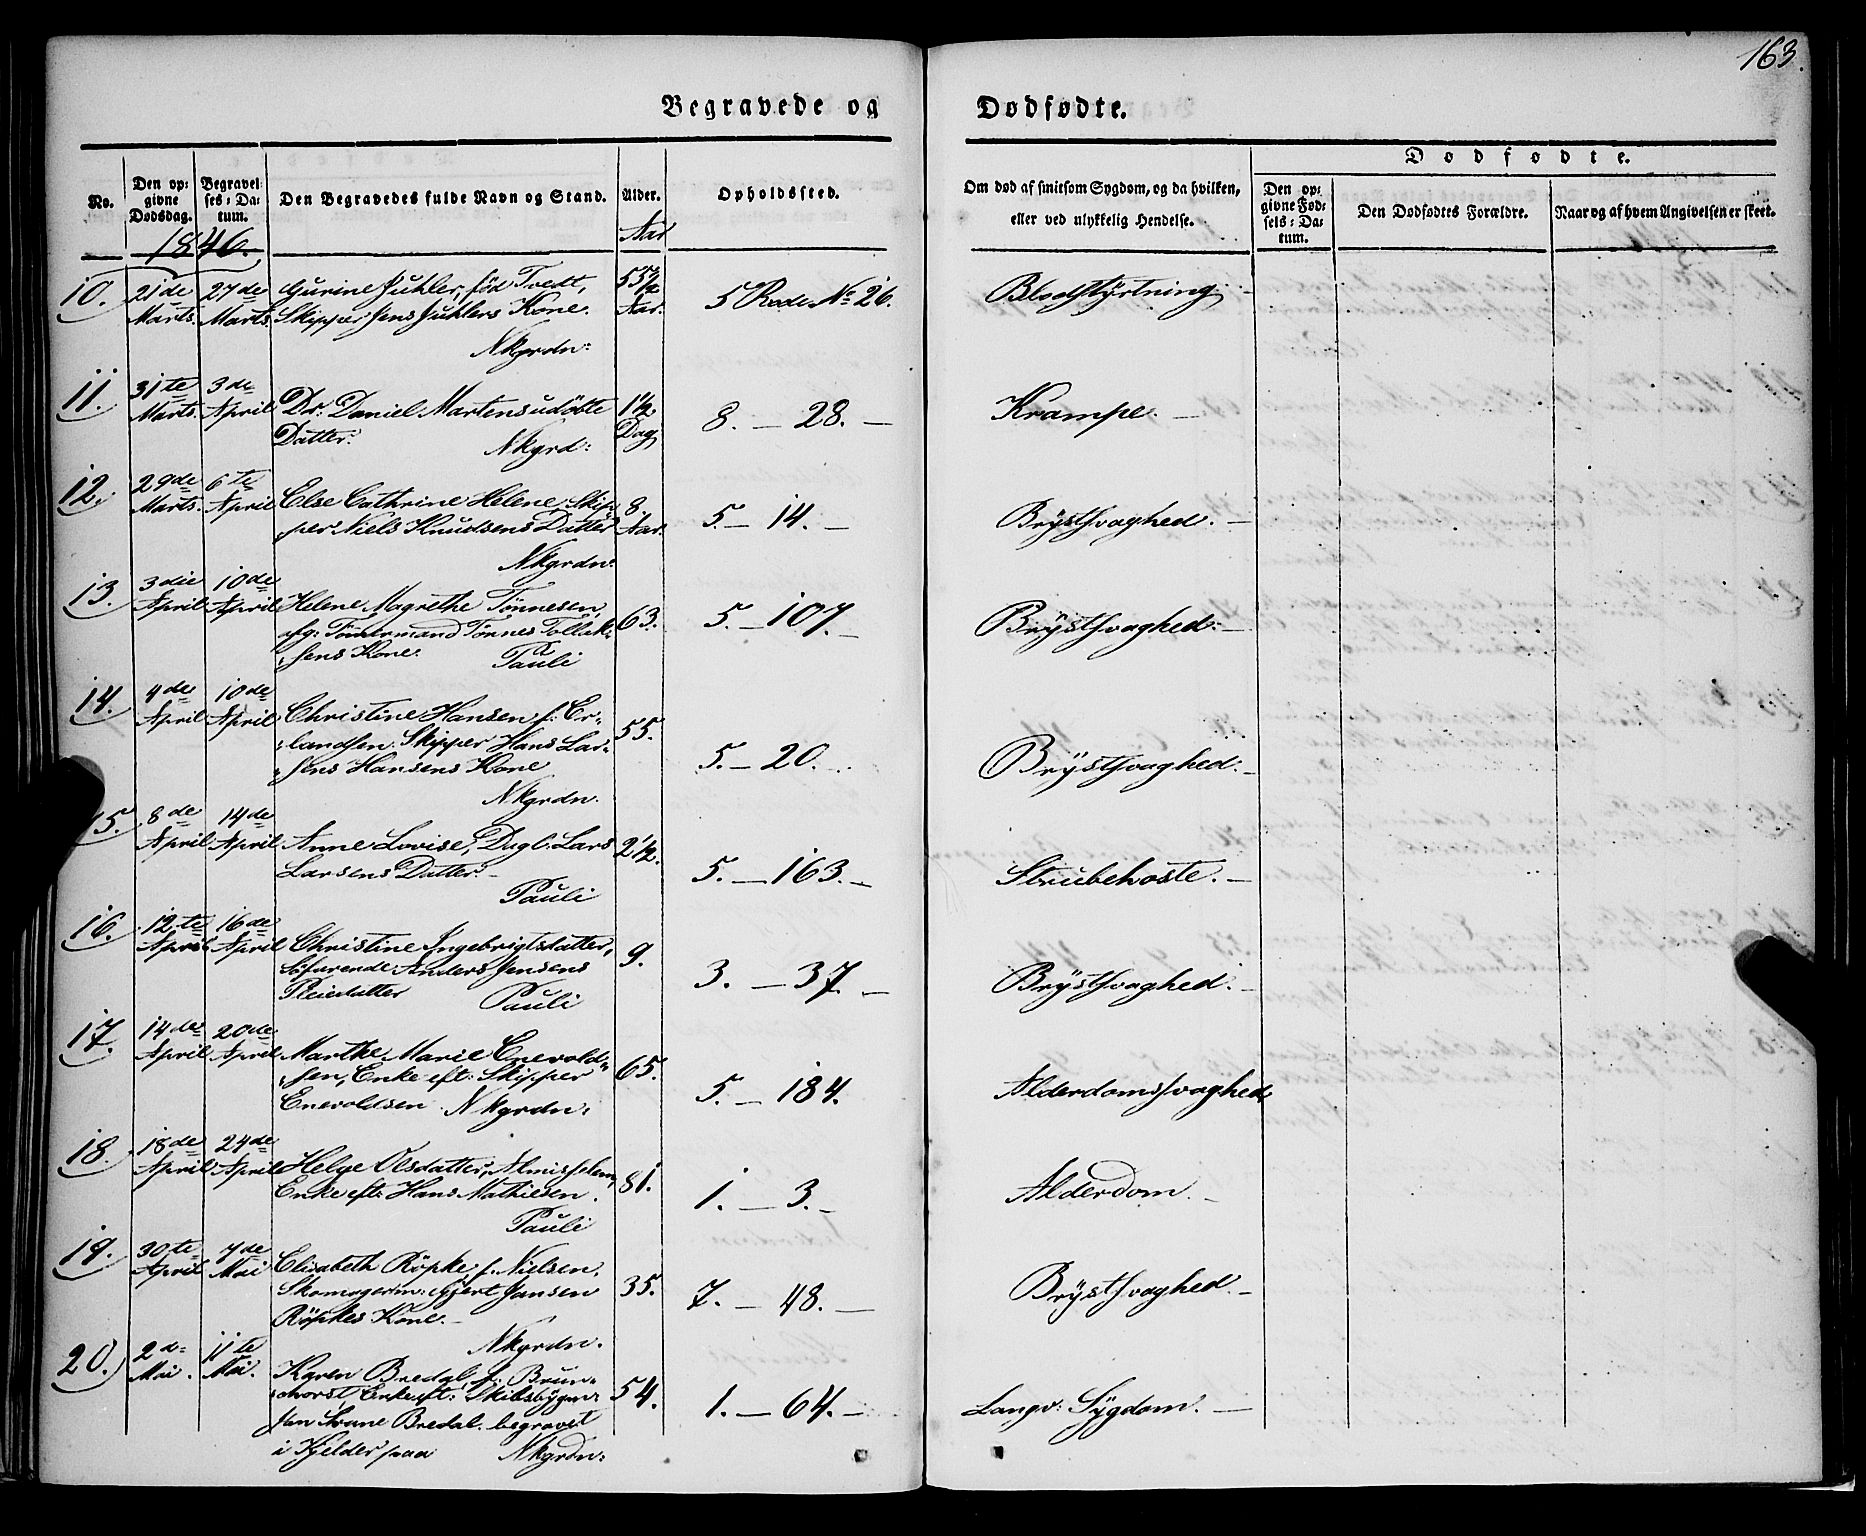 163.
Begravede og Dødfødte.
Dødfødte.
No.
Den opgivne Dødsdag.
Begravelses-Datum.
Den Begravedes fulde Navn og Stand.
Alder.
Opholdssted.
Om død af smitsom Sygdom, og da hvilken,
eller ved ulykkelig Hendelse.
Den opgivne Fødsels-Datum.
Den Dødfødtes Forældre.
Naar og af hvem Angivelsen er skeet.
1846.
Aar
10. 21de Marts. 27de Marts. Gurine Juhler, fød Tvedt,
Skipper Jens Juhlers Kone.
Nkgrdn:
55½ Aar. 5 Rode No 26. Blodstyrtning
11. 31te Marts. 3de April Dr. Daniel Martens udøbte
Datter.
Nkgrd:
1½ Dag 8. — 28. — Krampe. —
12. 29de Marts. 6te April Else Cathrine Helene, Skip-
per Niels Knudsens Datter
Nkgrdn:
8. Aar. 5. — 14. — Brystsvaghed. —
13. 3die April 10de April Helene Magrethe Tönnesen,
afg: Tömmermand Tönnes Tollak-
sens Kone.
Pauli
63. 5. — 107. — Brystsvaghed. —
14. 4de April 10de April Christine Hansen f. Er-
landsen. Skipper Hans Lar-
sens Hansens Kone
Nkgrdn.
55. 5. — 20. Brystsvaghed. —
15. 8de April 14de April Anne Lovise, Dagl: Lars
Larsens Datter. —
Pauli
2½. 5. — 163. — Strubehoste. —
16. 12te April 16de April Christine Ingebrigtsdatter,
Söfarende Anders Jensens
Pleiedatter
Pauli
9. 3. — 37. — Brystsvaghed. —
17. 14de April 20de April Marthe Marie Enevold-
sen, Enke eft: Skipper
Enevoldsen. Nkgrdn:
65. 5. — 184. Alderdomssvaghed
18. 18de April 24de April Helge Olsdatter, Almisselem,
Enke eft: Hans Mathiesen.
Pauli
81. 1. — 3. — Alderdom. —
19. 30te April 7de Mai Elisabeth Röpke, f. Nielsen,
Skomagerm: Gjert Jansen
Röpkes Kone. —
Nkgrdn.
35. 7. — 48. — Brystsvaghed. —
20. 2d- Mai. 11te Mai. Karen Bredal, f: Brun-
chorst, Enke eft: Skibsbygm:
Jan Bredal. begravet
i Kjelder paa Nkgrdn:
54. 1. — 64. — Langv: Sygdom. —